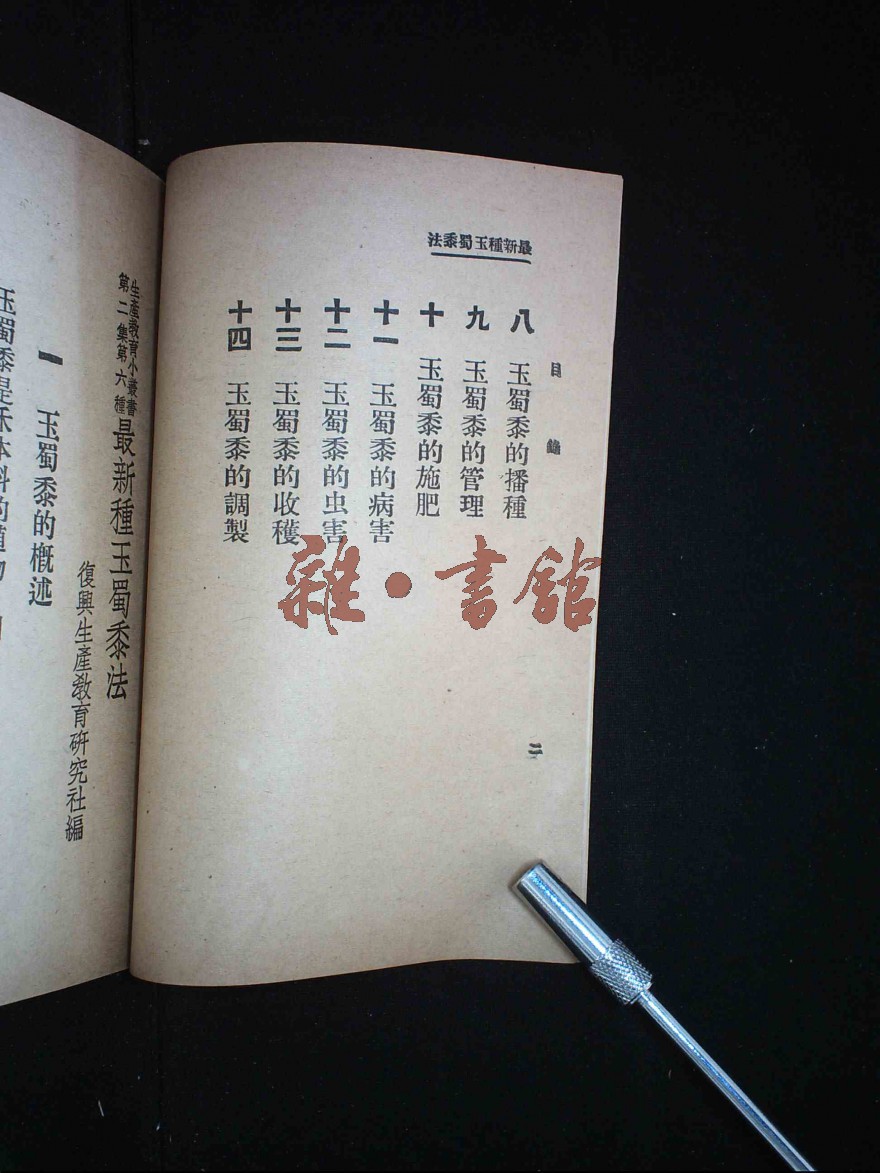 最新種玉蜀黍法
目錄
八 玉蜀黍的播種
九 玉蜀黍的管理
十 玉蜀黍的施肥
十一 玉蜀黍的病害
十二 玉蜀黍的虫害
十三 玉蜀黍的收穫
十四 玉蜀黍的調製
二
生產教育小叢書
第二集第六種
最新種玉蜀黍法
復興生產教育研究社編
一 玉蜀黍的概述
玉蜀黍是禾本科的植物
雜·書館